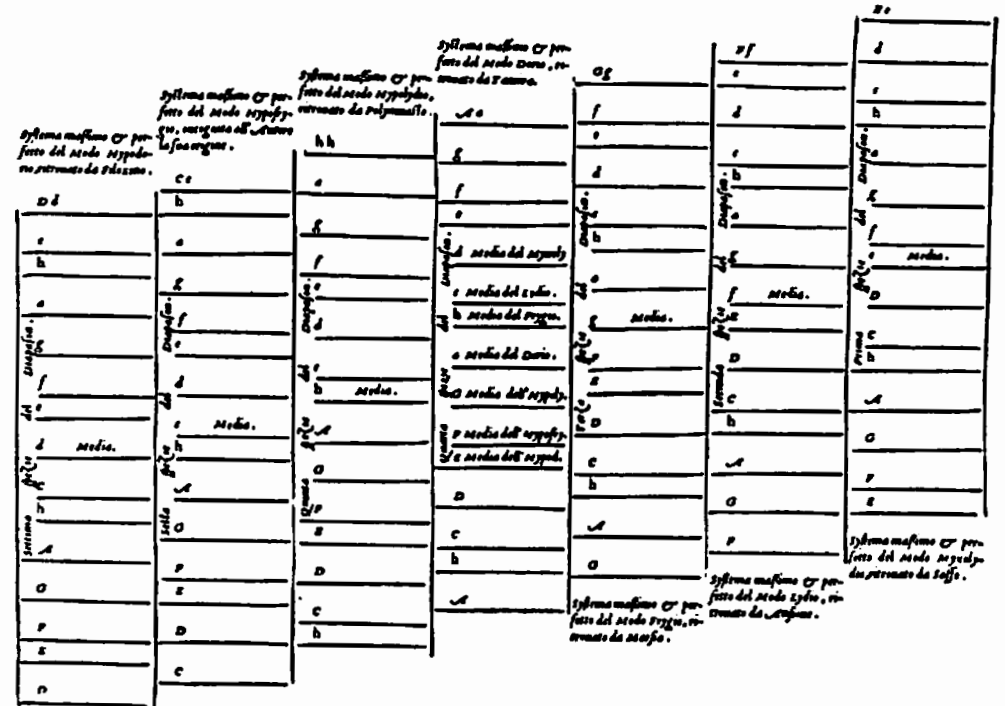 Systema massimo & per-
fetto del Modo Hypodo-
rio, ritrouato da Filozeno.
D d
c
h
a
g
f
e
d Media.
c
h
A
G
F
E
D
Settima spezie del Diapason.
Systema massimo & per-
fetto del Modo Hypofry-
gio, incognita all' Autore
la sua origine.
C c
h
a
g
f
e
d
c Media.
h
A
G
F
E
D
C
Sesta spezie del Diapason.
Systema massimo & per-
fetto del Modo Hypolydio,
ritrouato da Polymnasto.
h h
a
g
f
e
d
c
h Media.
A
G
F
E
D
C
h
Quinta spezie del Diapason.
Systema massimo & per-
fetto del Modo Dorio, ri-
trouato da
A a
g
f
e
d Media del Myxoly
c Media del Lydio.
h Media del Frygio.
a Media del Dorio.
G Media dell' Hypoly.
F Media dell' Hypofry.
E Media dell' Hypod.
D
C
h
A
Quarta spezie del Diapason.
G g
f
e
d
c
h
a
g Media.
F
E
D
C
h
A
G
Terza spezie del Diapason.
Systema massimo & per-
fetto del Modo Frygio, ri-
trouato da Marsia.
F f
e
d
c
h
a
g
f Media.
E
D
C
h
A
G
F
Seconda spezie del Diapason.
Systema massimo & per-
fetto del Modo Lydio, ri-
trouato da
E e
d
c
h
a
g
f
e Media.
D
C
h
A
G
F
E
Prima spezie del Diapason.
Systema massimo & per-
fetto del Modo Myxoly-
dio, ritrouato da Saffo.